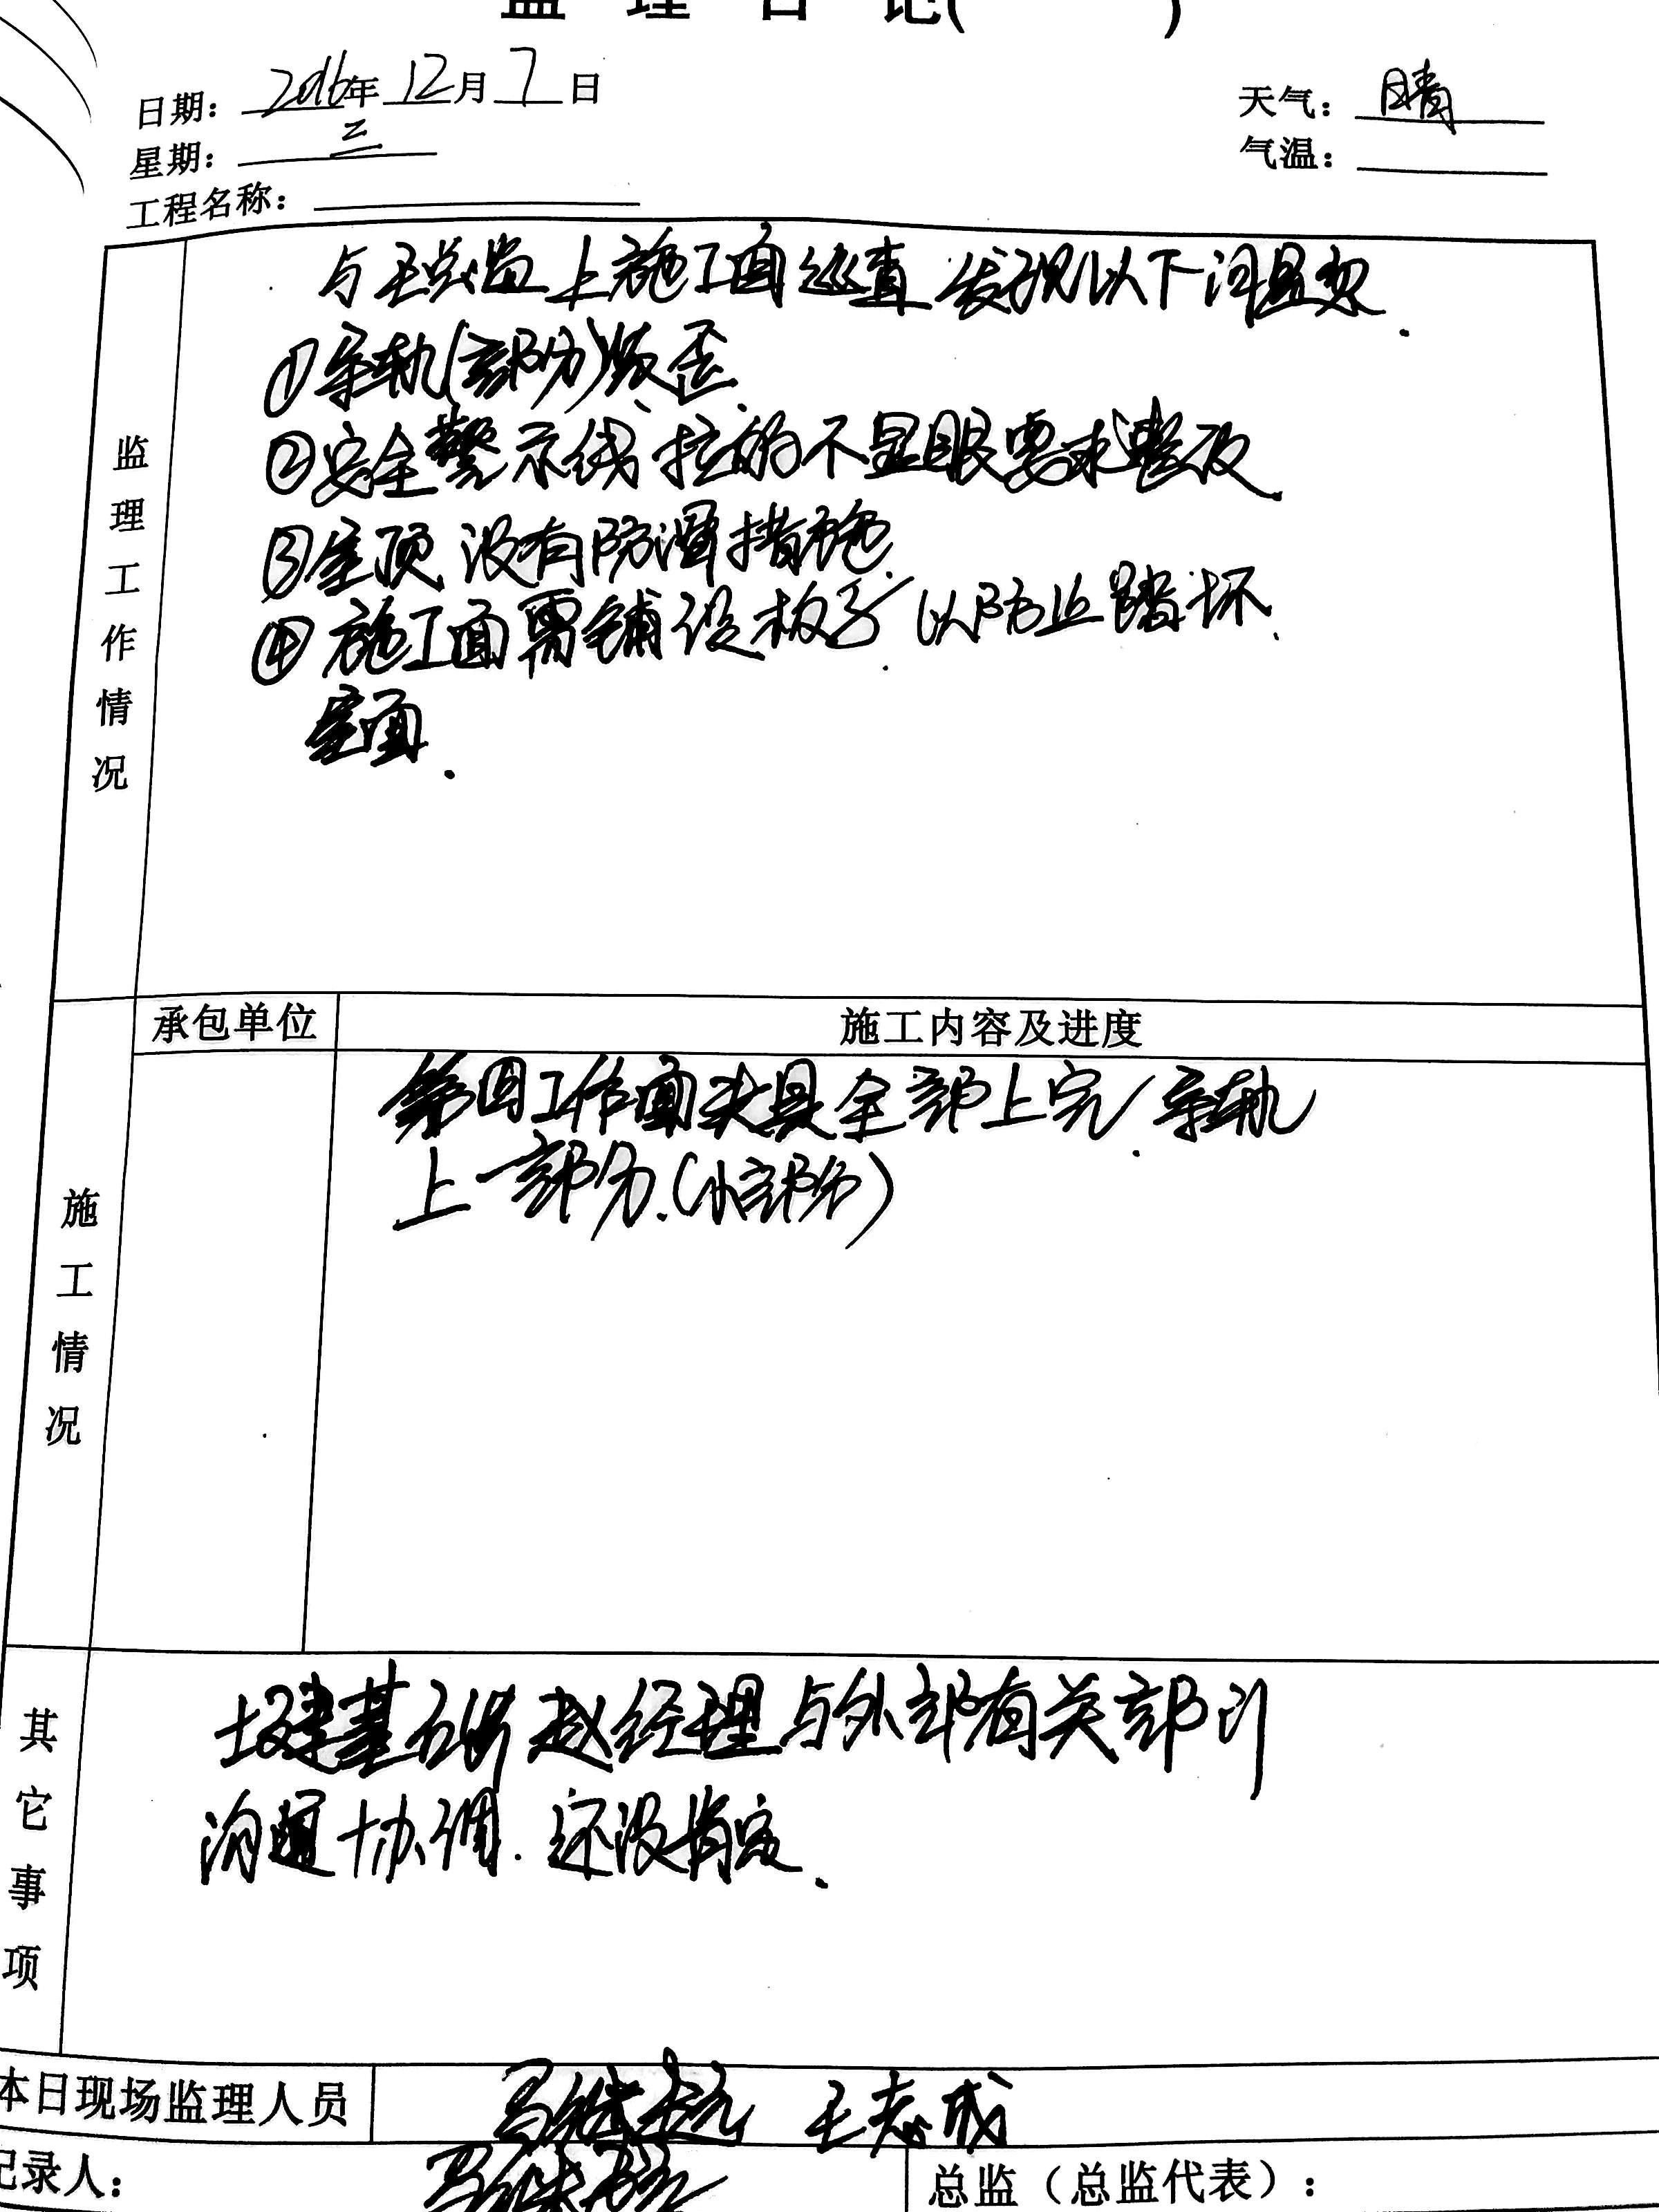 监 理 日 记( )
日期: 2016年 12月 7日
天气: 晴
星期: 三
气温:
工程名称:
监理工作情况
与王总监上施工面巡查 发现以下问题
①导轨(部分)歪.
②安全警示线拉的不显眼要求整改.
③屋顶没有防滑措施.
④施工面需铺设板子以防止踏坏.
屋面.
施工情况
承包单位
施工内容及进度
第四工作面夹具全部上完.导轨
上一部分.(小部分)
其它事项
土建基础赵经理与外部有关部门
沟通协调.还没肯定.
本日现场监理人员
马继 王志成
记录人: 马继
总监(总监代表):